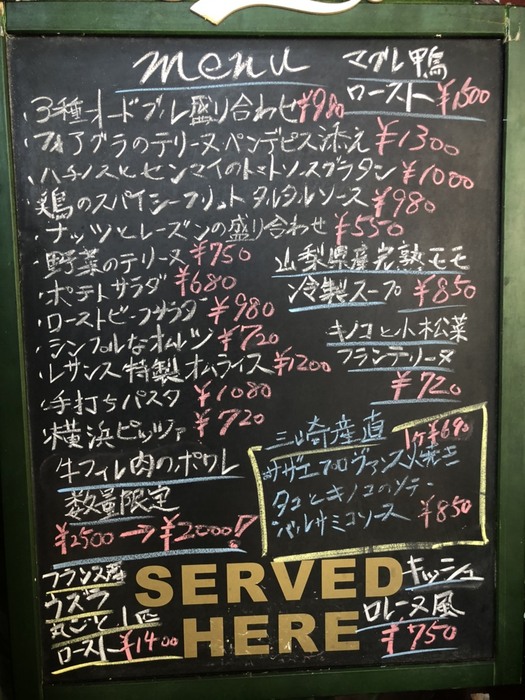 menu
マグレ鴨
ロースト ¥1500
・3種オードブル盛り合わせ ¥980
・フォアグラのテリーヌペンデピス添え ¥1300
・ハチノスとセンマイのトマトソースグラタン ¥1000
・鶏のスパイシーフリット タルタルソース ¥980
・ナッツとレーズンの盛り合わせ ¥550
・野菜のテリーヌ ¥750
・ポテトサラダ ¥680
・ローストビーフサラダ ¥980
・シンプルなオムレツ ¥720
・レサンス特製オムライス ¥1200
・手打ちパスタ ¥1080
・横浜ピッツァ ¥720
山梨県産完熟モモ
冷製スープ ¥850
キノコと小松菜
フランテリーヌ
¥720
牛フィレ肉のポワレ
数量限定
¥2500→¥2000!!
三崎産直
1ヶ¥690
サザエプロヴァンス焼き
タコとキノコのソテー
バルサミコソース ¥850
フランス産
ウズラ
丸ごと1匹
ロースト ¥1400
SERVED
HERE
キッシュ
ロレーヌ風
¥750